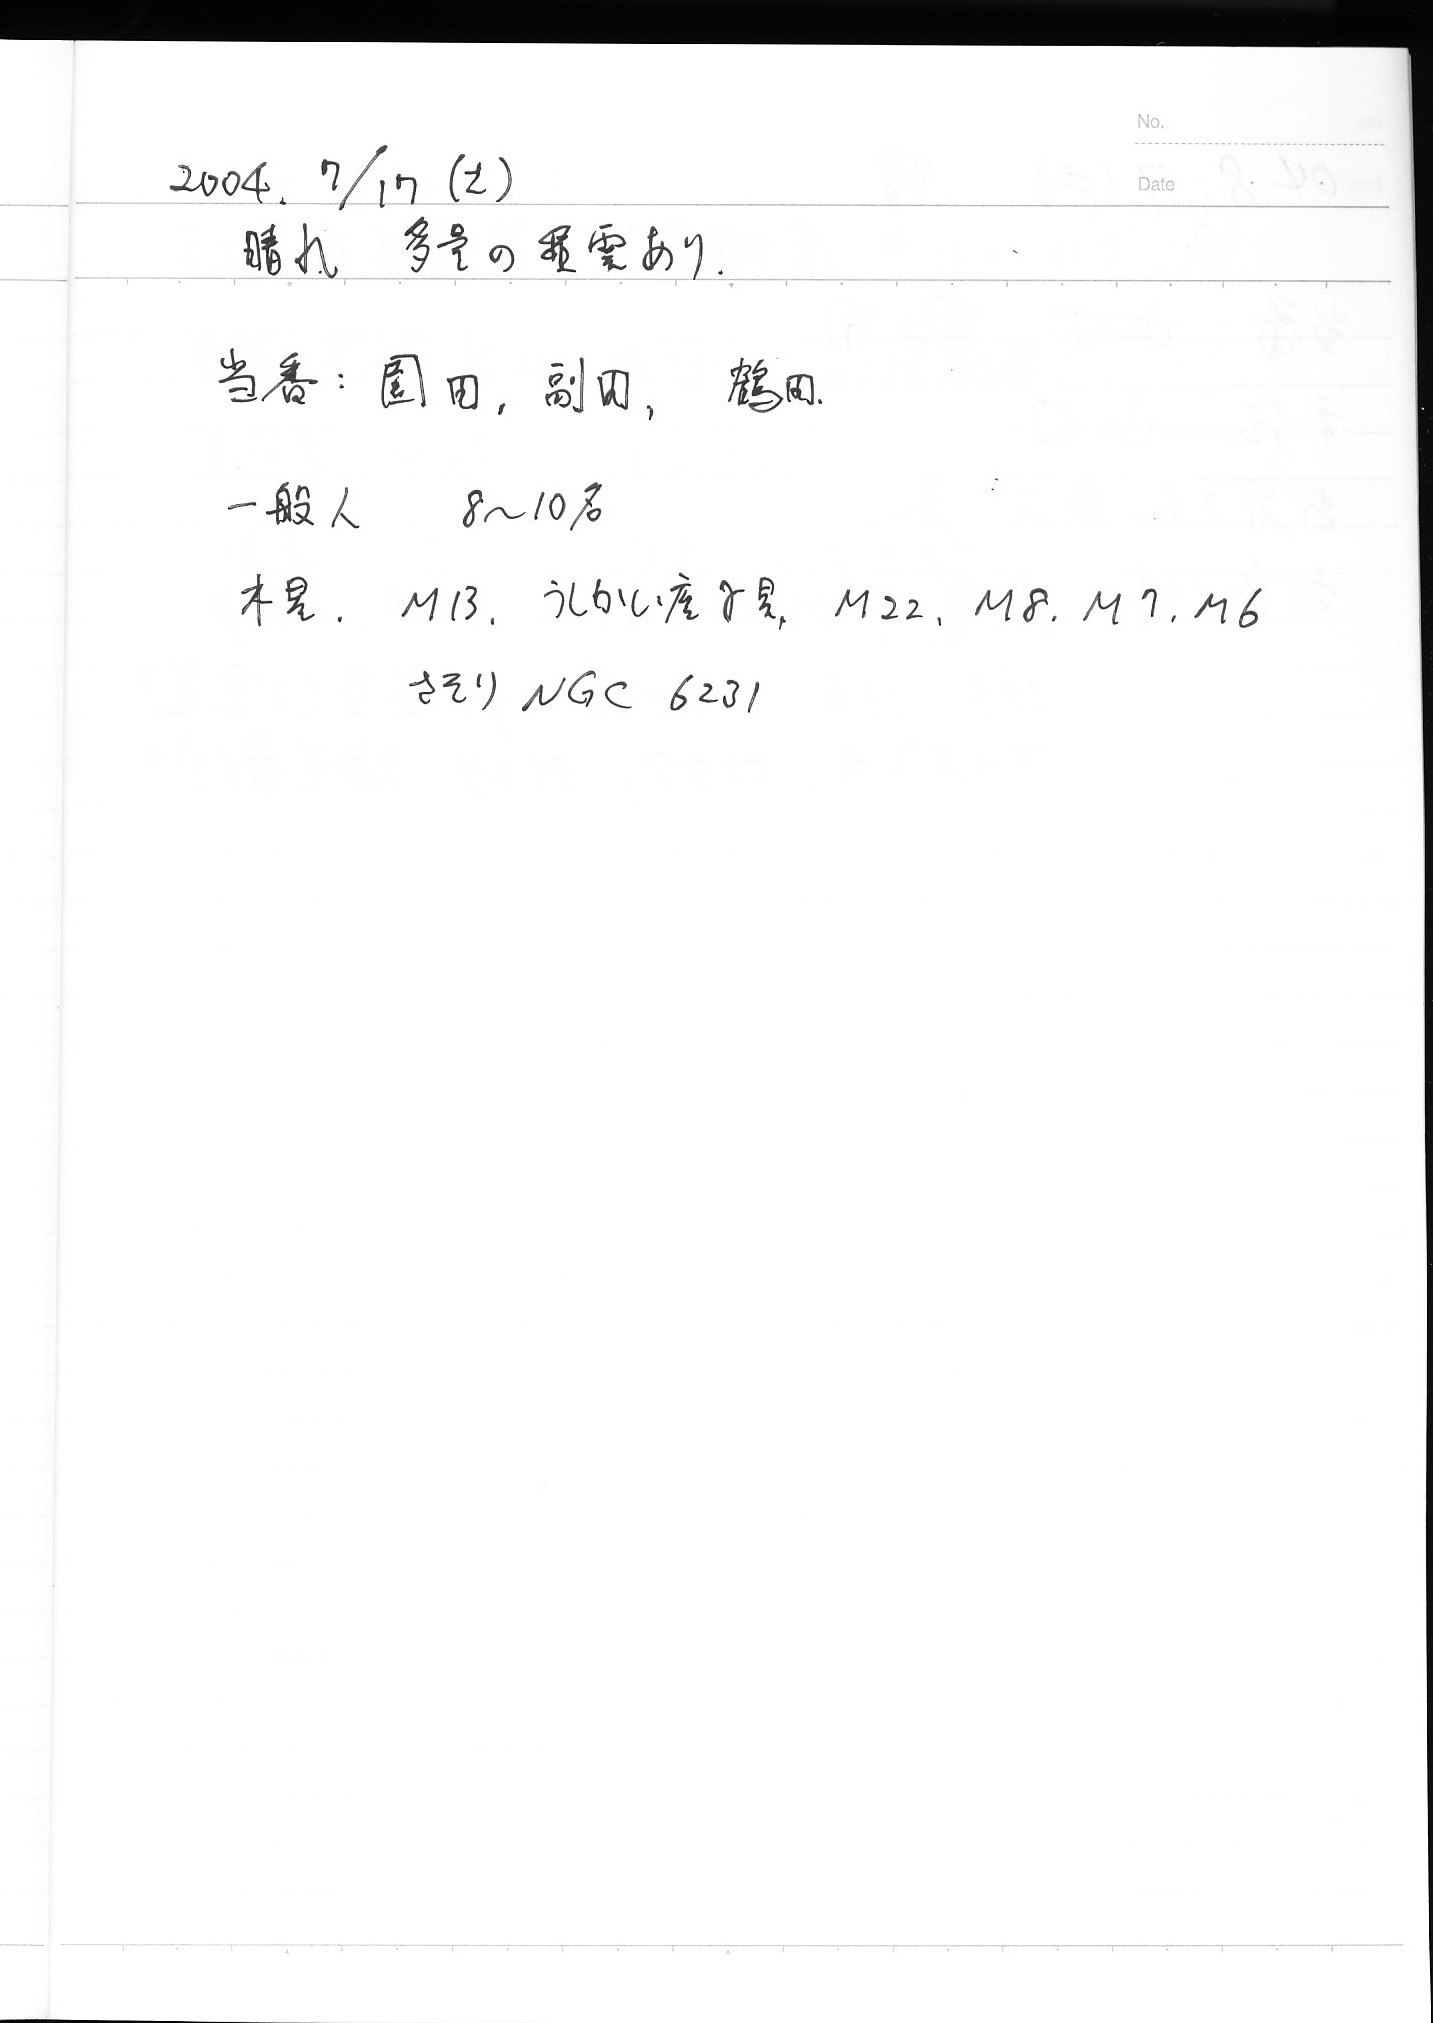 No.
Date
2004. 7/17 (土)
晴れ 多量の積雲あり.
当番:園田, 副田, 鶴田.
一般人 8〜10名
木星. M13. うしかい座γ星, M22, M8. M7. M6
さそり NGC 6231